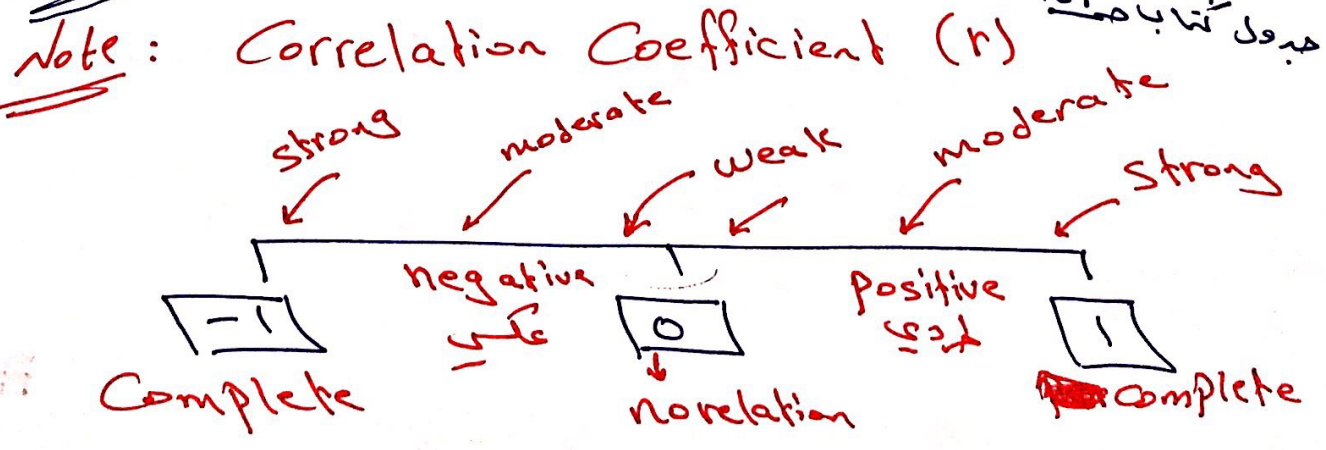 Note : Correlation Coefficient (r)
جدول كتاب
strong moderate weak moderate Strong
negative positive
عكسي طردي
-1 0 1
Complete norelation complete